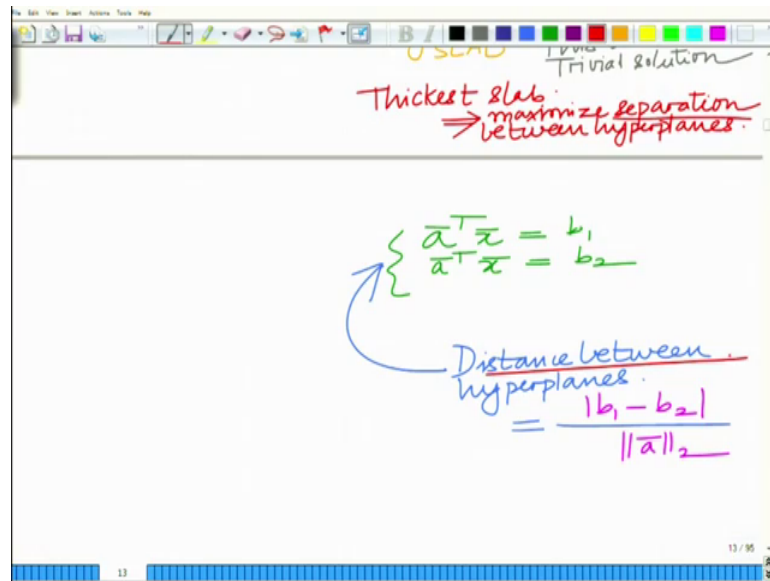 File Edit View Insert Actions Tools Help
B I
SLAB
Trivial solution
Thickest slab.
⇒ maximize separation
between hyperplanes.
{ a̅ᵀ x̅ = b₁
a̅ᵀ x̅ = b₂
Distance between
hyperplanes.
= |b₁ - b₂| / ||a̅||₂
13 / 95
13